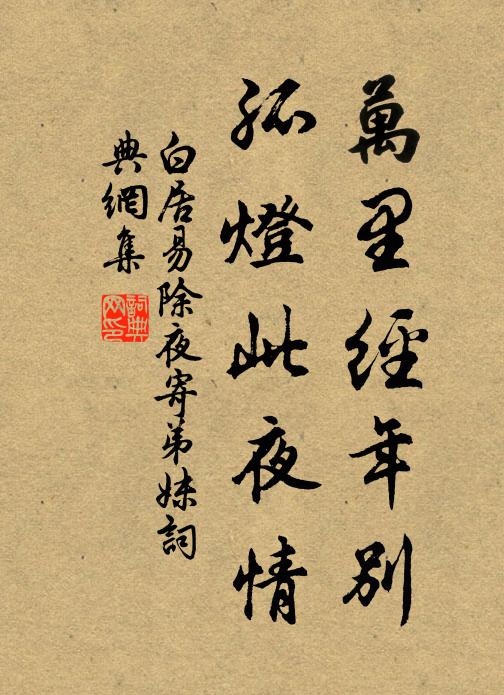 萬里經年別
孤燈此夜情
白居易除夜寄弟妹詞
典網集
詞典網印